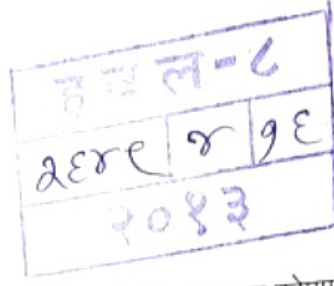 हवल-८
२६४९ ४ १६
२०१३